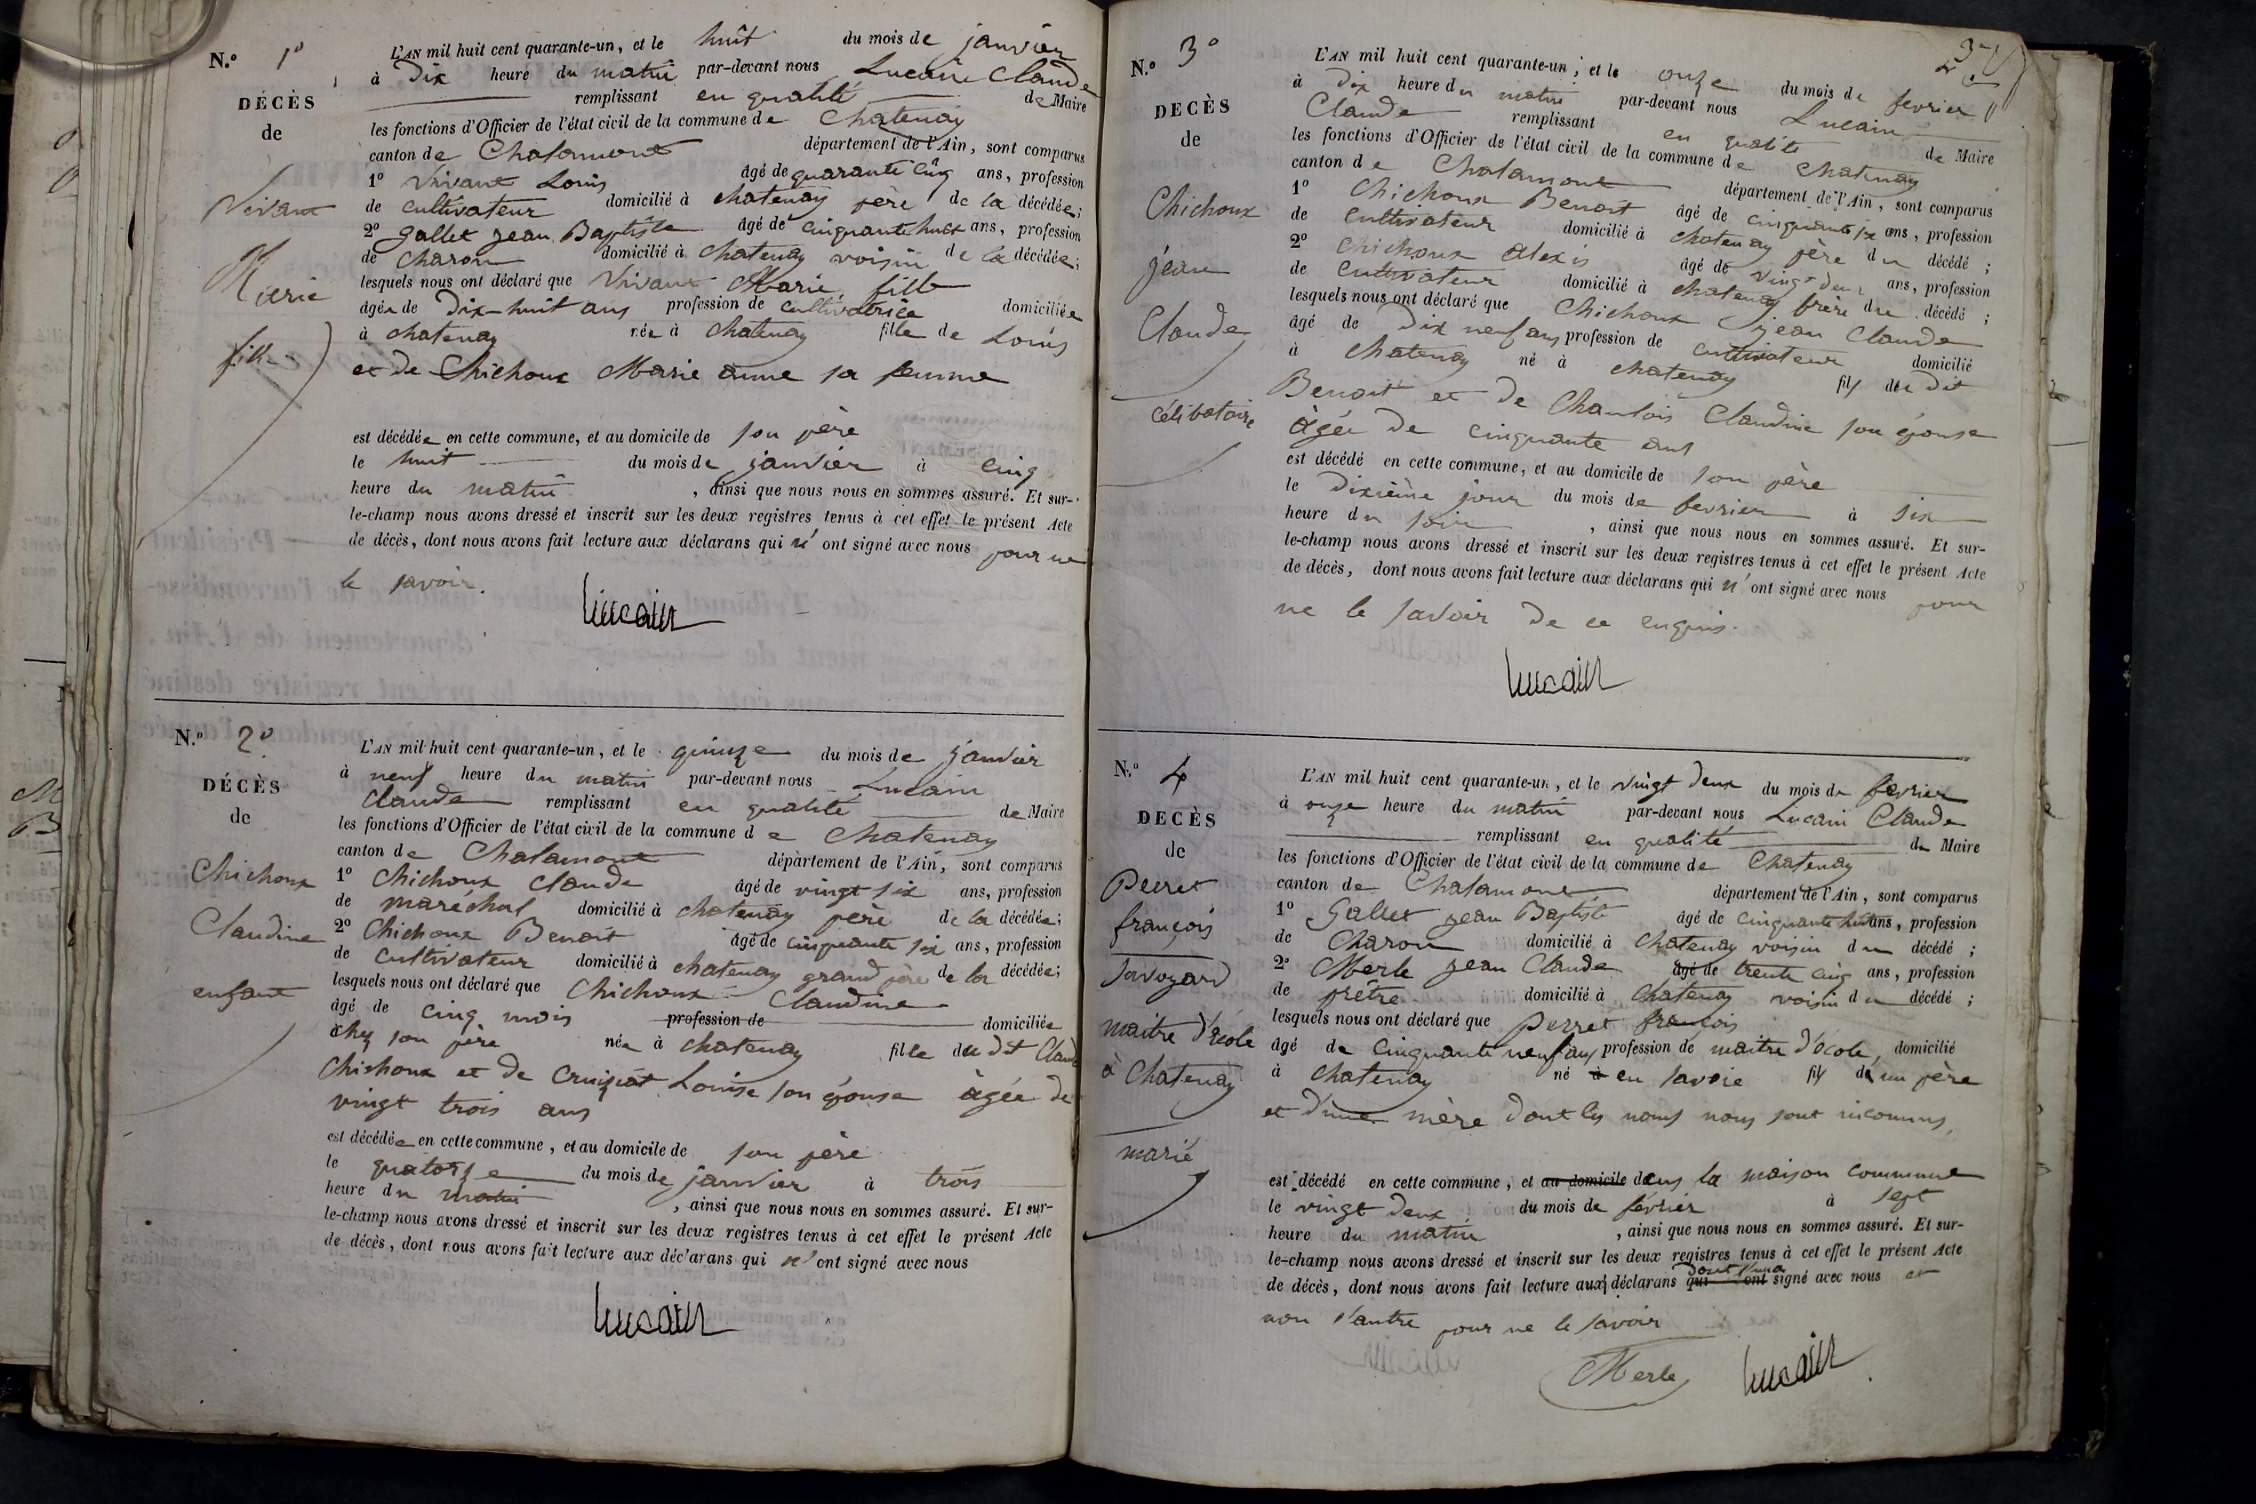 N.º 1º
DÉCÈS
de
Vivant
Marie
fille
L'AN mil huit cent quarante-un, et le huit du mois de janvier
à Dix heure du matin par-devant nous Lucain Claude
remplissant en qualité de Maire
les fonctions d'Officier de l'état civil de la commune de Chatenay
canton de Chalamont département de l'Ain, sont comparus
1º Vivant Louis âgé de quarante cinq ans, profession
de cultivateur domicilié à chatenay père de la décédée;
2º Gallet jean Baptiste âgé de cinquante huit ans, profession
de charon domicilié à chatenay voisin de la décédée;
lesquels nous ont déclaré que Vivant Marie fille
âgée de Dix-huit ans profession de cultivatrice domiciliée
à chatenay née à chatenay fille de Louis
et de Chichoux Marie anne sa femme
est décédée en cette commune, et au domicile de son père
le huit du mois de janvier à cinq
heure du matin, ainsi que nous nous en sommes assuré. Et sur-
le-champ nous avons dressé et inscrit sur les deux registres tenus à cet effet le présent Acte
de décès, dont nous avons fait lecture aux déclarans qui n'ont signé avec nous pour ne
le savoir.
Lucain
N.º 2º
DÉCÈS
de
Chichoux
Claudine
enfant
L'AN mil huit cent quarante-un, et le quinze du mois de janvier
à neuf heure du matin par-devant nous Lucain
Claude remplissant en qualité de Maire
les fonctions d'Officier de l'état civil de la commune de Chatenay
canton de Chalamont département de l'Ain, sont comparus
1º Chichoux Claude âgé de vingt six ans, profession
de marechal domicilié à chatenay père de la décédée;
2º Chichoux Benoit âgé de cinquante six ans, profession
de cultivateur domicilié à chatenay grand père de la décédée;
lesquels nous ont déclaré que Chichoux Claudine
âgé de cinq mois profession de domiciliée
chez son père née à chatenay fille du dit Claude
Chichoux et de Cruizeat Louise son épouse âgée de
vingt trois ans
est décédée en cette commune, et au domicile de son père
le quatorze du mois de janvier à trois
heure du matin, ainsi que nous nous en sommes assuré. Et sur-
le-champ nous avons dressé et inscrit sur les deux registres tenus à cet effet le présent Acte
de décès, dont nous avons fait lecture aux déclarans qui n'ont signé avec nous
Lucain
N.º 3º
DÉCÈS
de
Chichoux
jean
Claude
célibataire
L'AN mil huit cent quarante-un, et le onze du mois de fevrier
à dix heure du matin par-devant nous Lucain
Claude remplissant en qualité de Maire
les fonctions d'Officier de l'état civil de la commune de chatenay
canton de Chalamont département de l'Ain, sont comparus
1º Chichoux Benoit âgé de cinquante six ans, profession
de cultivateur domicilié à chatenay père du décédé;
2º Chichoux Alexis âgé de vingt deux ans, profession
de cultivateur domicilié à chatenay frère du décédé;
lesquels nous ont déclaré que Chichoux jean Claude
âgé de Dix neuf ans profession de cultivateur domicilié
à chatenay né à chatenay fils du dit
Benoit et de Chanlois Claudine son épouse
âgée de cinquante ans
est décédé en cette commune, et au domicile de son père
le Dixième jour du mois de fevrier à six
heure du soir, ainsi que nous nous en sommes assuré. Et sur-
le-champ nous avons dressé et inscrit sur les deux registres tenus à cet effet le présent Acte
de décès, dont nous avons fait lecture aux déclarans qui n'ont signé avec nous pour
ne le savoir de ce enquis.
Lucain
N.º 4
DÉCÈS
de
Perret
françois
Savoyard
maitre d'école
à Chatenay
marié
L'AN mil huit cent quarante-un, et le vingt deux du mois de fevrier
à onze heure du matin par-devant nous Lucain Claude
remplissant en qualité du Maire
les fonctions d'Officier de l'état civil de la commune de Chatenay
canton de Chalamont département de l'Ain, sont comparus
1º Gallet jean Baptiste âgé de cinquante huit ans, profession
de Charon domicilié à chatenay voisin du décédé;
2º Merle jean Claude âgé de trente cinq ans, profession
de prêtre domicilié à chatenay voisin du décédé;
lesquels nous ont déclaré que Perret françois
âgé de Cinquante neuf ans profession de maitre d'école, domicilié
à chatenay né à en Savoie fils de un père
et d'une mère dont les noms nous sont inconnus,
est décédé en cette commune, et au domicile dans la maison commune
le vingt deux du mois de février à sept
heure du matin, ainsi que nous nous en sommes assuré. Et sur-
le-champ nous avons dressé et inscrit sur les deux registres tenus à cet effet le présent Acte
de décès, dont nous avons fait lecture aux déclarans qui ont dont l'un a signé avec nous et
non l'autre pour ne le savoir
Merle Lucain